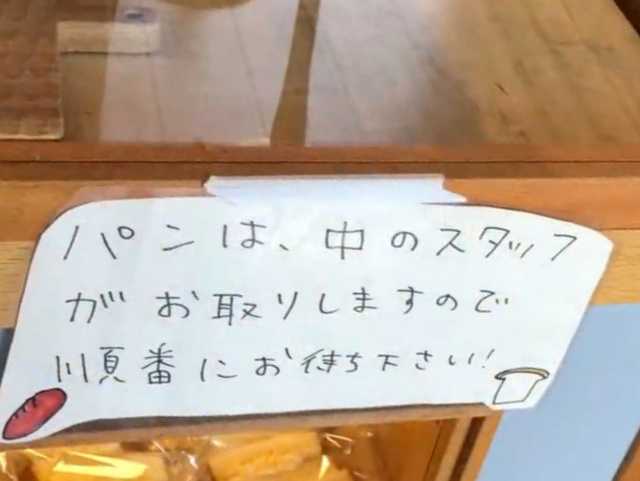 パンは、中のスタッフ
がお取りしますので
順番にお待ち下さい!